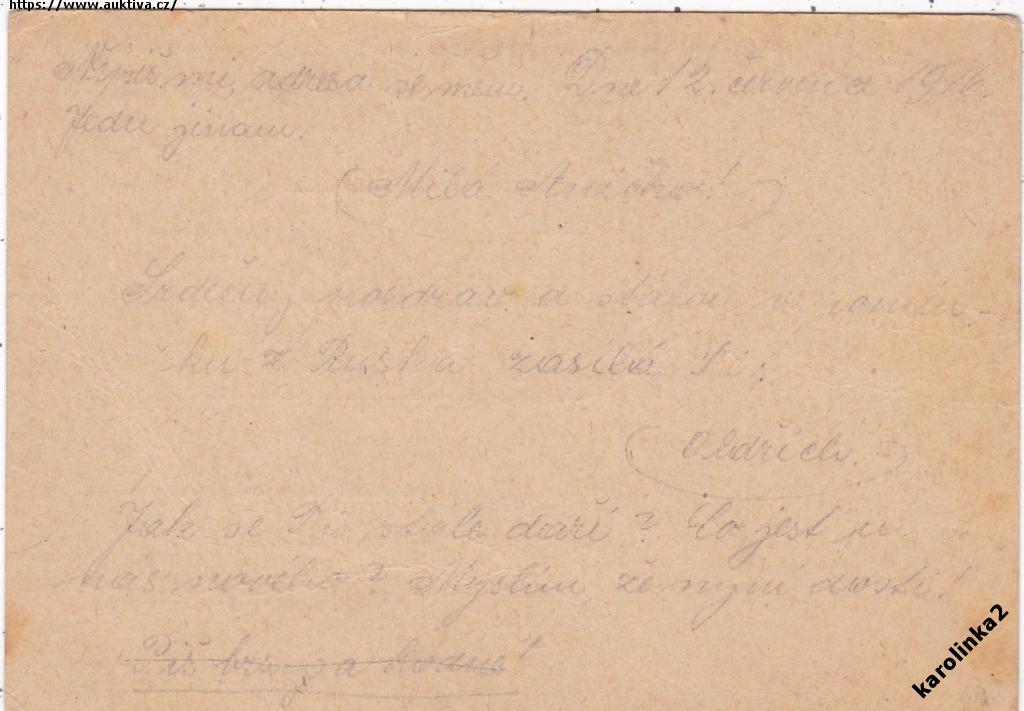 https://www.auktiva.cz/
Nepiš mi, adresa se mění. Dne 12. července 1916.
Jedu jinam.
(Milá Aničko!)
Srdečný pozdrav a stálou vzpomín-
ku z Ruska zasílá Ti
(Oldřich.)
Jak se Ti stále daří? Co jest u
nás nového? Myslím, že nyní dosti!
Piš brzy a hodně!
karolinka2